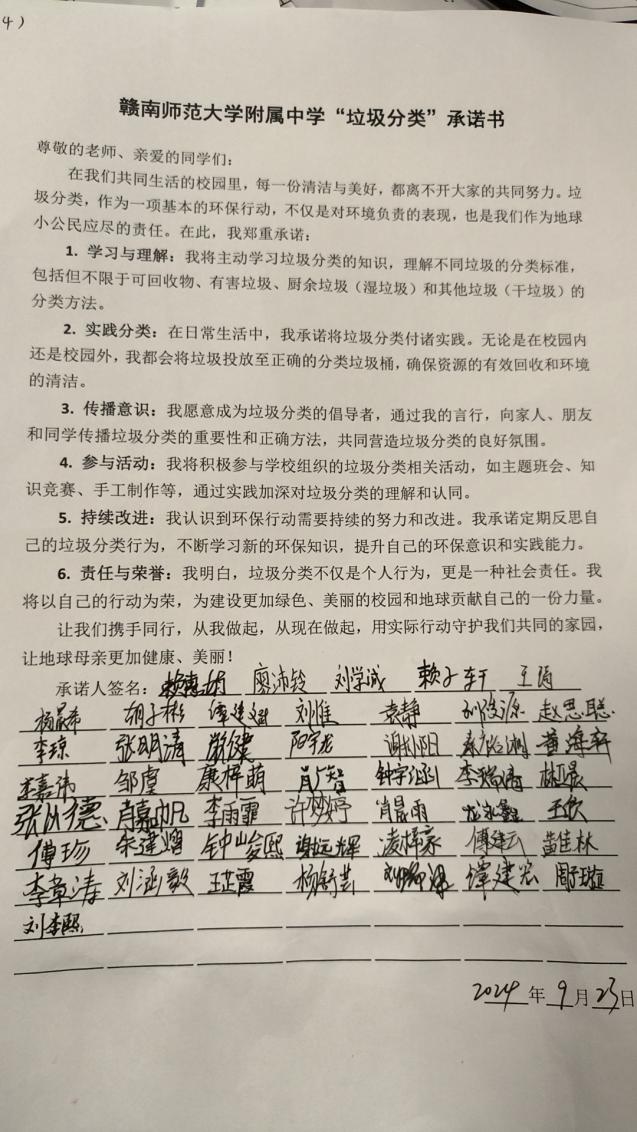 4）
赣南师范大学附属中学“垃圾分类”承诺书
尊敬的老师、亲爱的同学们：
在我们共同生活的校园里，每一份清洁与美好，都离不开大家的共同努力。垃
圾分类，作为一项基本的环保行动，不仅是对环境负责的表现，也是我们作为地球
小公民应尽的责任。在此，我郑重承诺：
1. 学习与理解：我将主动学习垃圾分类的知识，理解不同垃圾的分类标准，
包括但不限于可回收物、有害垃圾、厨余垃圾（湿垃圾）和其他垃圾（干垃圾）的
分类方法。
2. 实践分类：在日常生活中，我承诺将垃圾分类付诸实践。无论是在校园内
还是校园外，我都会将垃圾投放至正确的分类垃圾桶，确保资源的有效回收和环境
的清洁。
3. 传播意识：我愿意成为垃圾分类的倡导者，通过我的言行，向家人、朋友
和同学传播垃圾分类的重要性和正确方法，共同营造垃圾分类的良好氛围。
4. 参与活动：我将积极参与学校组织的垃圾分类相关活动，如主题班会、知
识竞赛、手工制作等，通过实践加深对垃圾分类的理解和认同。
5. 持续改进：我认识到环保行动需要持续的努力和改进。我承诺定期反思自
己的垃圾分类行为，不断学习新的环保知识，提升自己的环保意识和实践能力。
6. 责任与荣誉：我明白，垃圾分类不仅是个人行为，更是一种社会责任。我
将以自己的行动为荣，为建设更加绿色、美丽的校园和地球贡献自己的一份力量。
让我们携手同行，从我做起，从现在做起，用实际行动守护我们共同的家园，
让地球母亲更加健康、美丽！
承诺人签名： 廖沛铃 刘学诚 赖子轩
胡子彬 刘佳 袁静 赵思聪
李琼 张明清
李嘉伟 邹虔 康梓萌 肖广智
李雨霏 许梦婷 肖晨雨 王欣
傅珍 宋建熠 钟山俊熙 谢远辉 凌梓豪 傅建云 黄佳林
李章涛 刘涵毅 王芷霞 杨舒芸 谭建宏
刘李熙
2024年9月23日